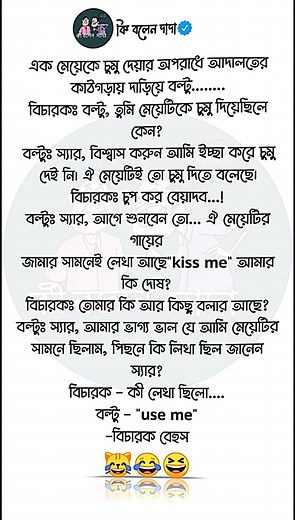 কি বলেন দাদা
এক মেয়েকে চুমু দেয়ার অপরাধে আদালতের
কাঠগড়ায় দাড়িয়ে বল্টু........
বিচারকঃ বল্টু, তুমি মেয়েটিকে চুমু দিয়েছিলে
কেন?
বল্টুঃ স্যার, বিশ্বাস করুন আমি ইচ্ছা করে চুমু
দেই নি। ঐ মেয়েটিই তো চুমু দিতে বলেছে।
বিচারকঃ চুপ কর বেয়াদব...!
বল্টুঃ স্যার, আগে শুনবেন তো... ঐ মেয়েটির
গায়ের
জামার সামনেই লেখা আছে"kiss me" আমার
কি দোষ?
বিচারকঃ তোমার কি আর কিছু বলার আছে?
বল্টুঃ স্যার, আমার ভাগ্য ভাল যে আমি মেয়েটির
সামনে ছিলাম, পিছনে কি লিখা ছিল জানেন
স্যার?
বিচারক – কী লেখা ছিলো....
বল্টু – "use me"
–বিচারক বেহুস